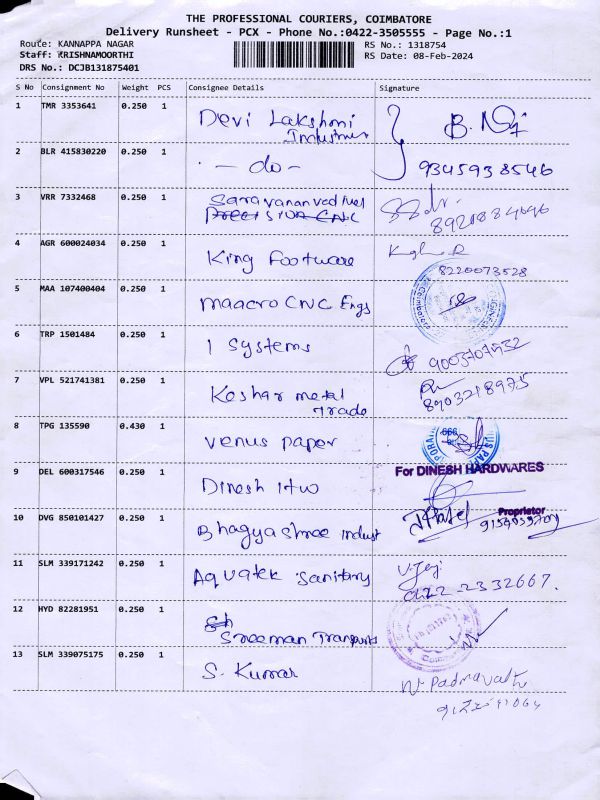 THE PROFESSIONAL COURIERS, COIMBATORE
Delivery Runsheet - PCX - Phone No.:0422-3505555 - Page No.:1
Route: KANNAPPA NAGAR
RS No.: 1318754
Staff: KRISHNAMOORTHI
RS Date: 08-Feb-2024
DRS No.: DCJB131875401
S No Consignment No Weight PCS Consignee Details Signature
1 TMR 3353641 0.250 1 Devi Lakshmi B.
Industries
2 BLR 415830220 0.250 1 - do - 9345938546
3 VRR 7332468 0.250 1 Saravananvadivel
Precision CNC
4 AGR 600024034 0.250 1 King Footware
8220073528
5 MAA 107400404 0.250 1 maacro CNC Engs
6 TRP 1501484 0.250 1 I Systems
9003707532
7 VPL 521741381 0.250 1 Keshar metal
Trade 8903218975
8 TPG 135590 0.430 1 venus paper
For DINESH HARDWARES
9 DEL 600317546 0.250 1 Dinesh H/w
Proprietor
10 DVG 850101427 0.250 1 Bhagyashree indust
11 SLM 339171242 0.250 1 Aquatek Sanitary
0422-2332667.
12 HYD 82281951 0.250 1
Sreeman Transports
13 SLM 339075175 0.250 1 S. Kumar